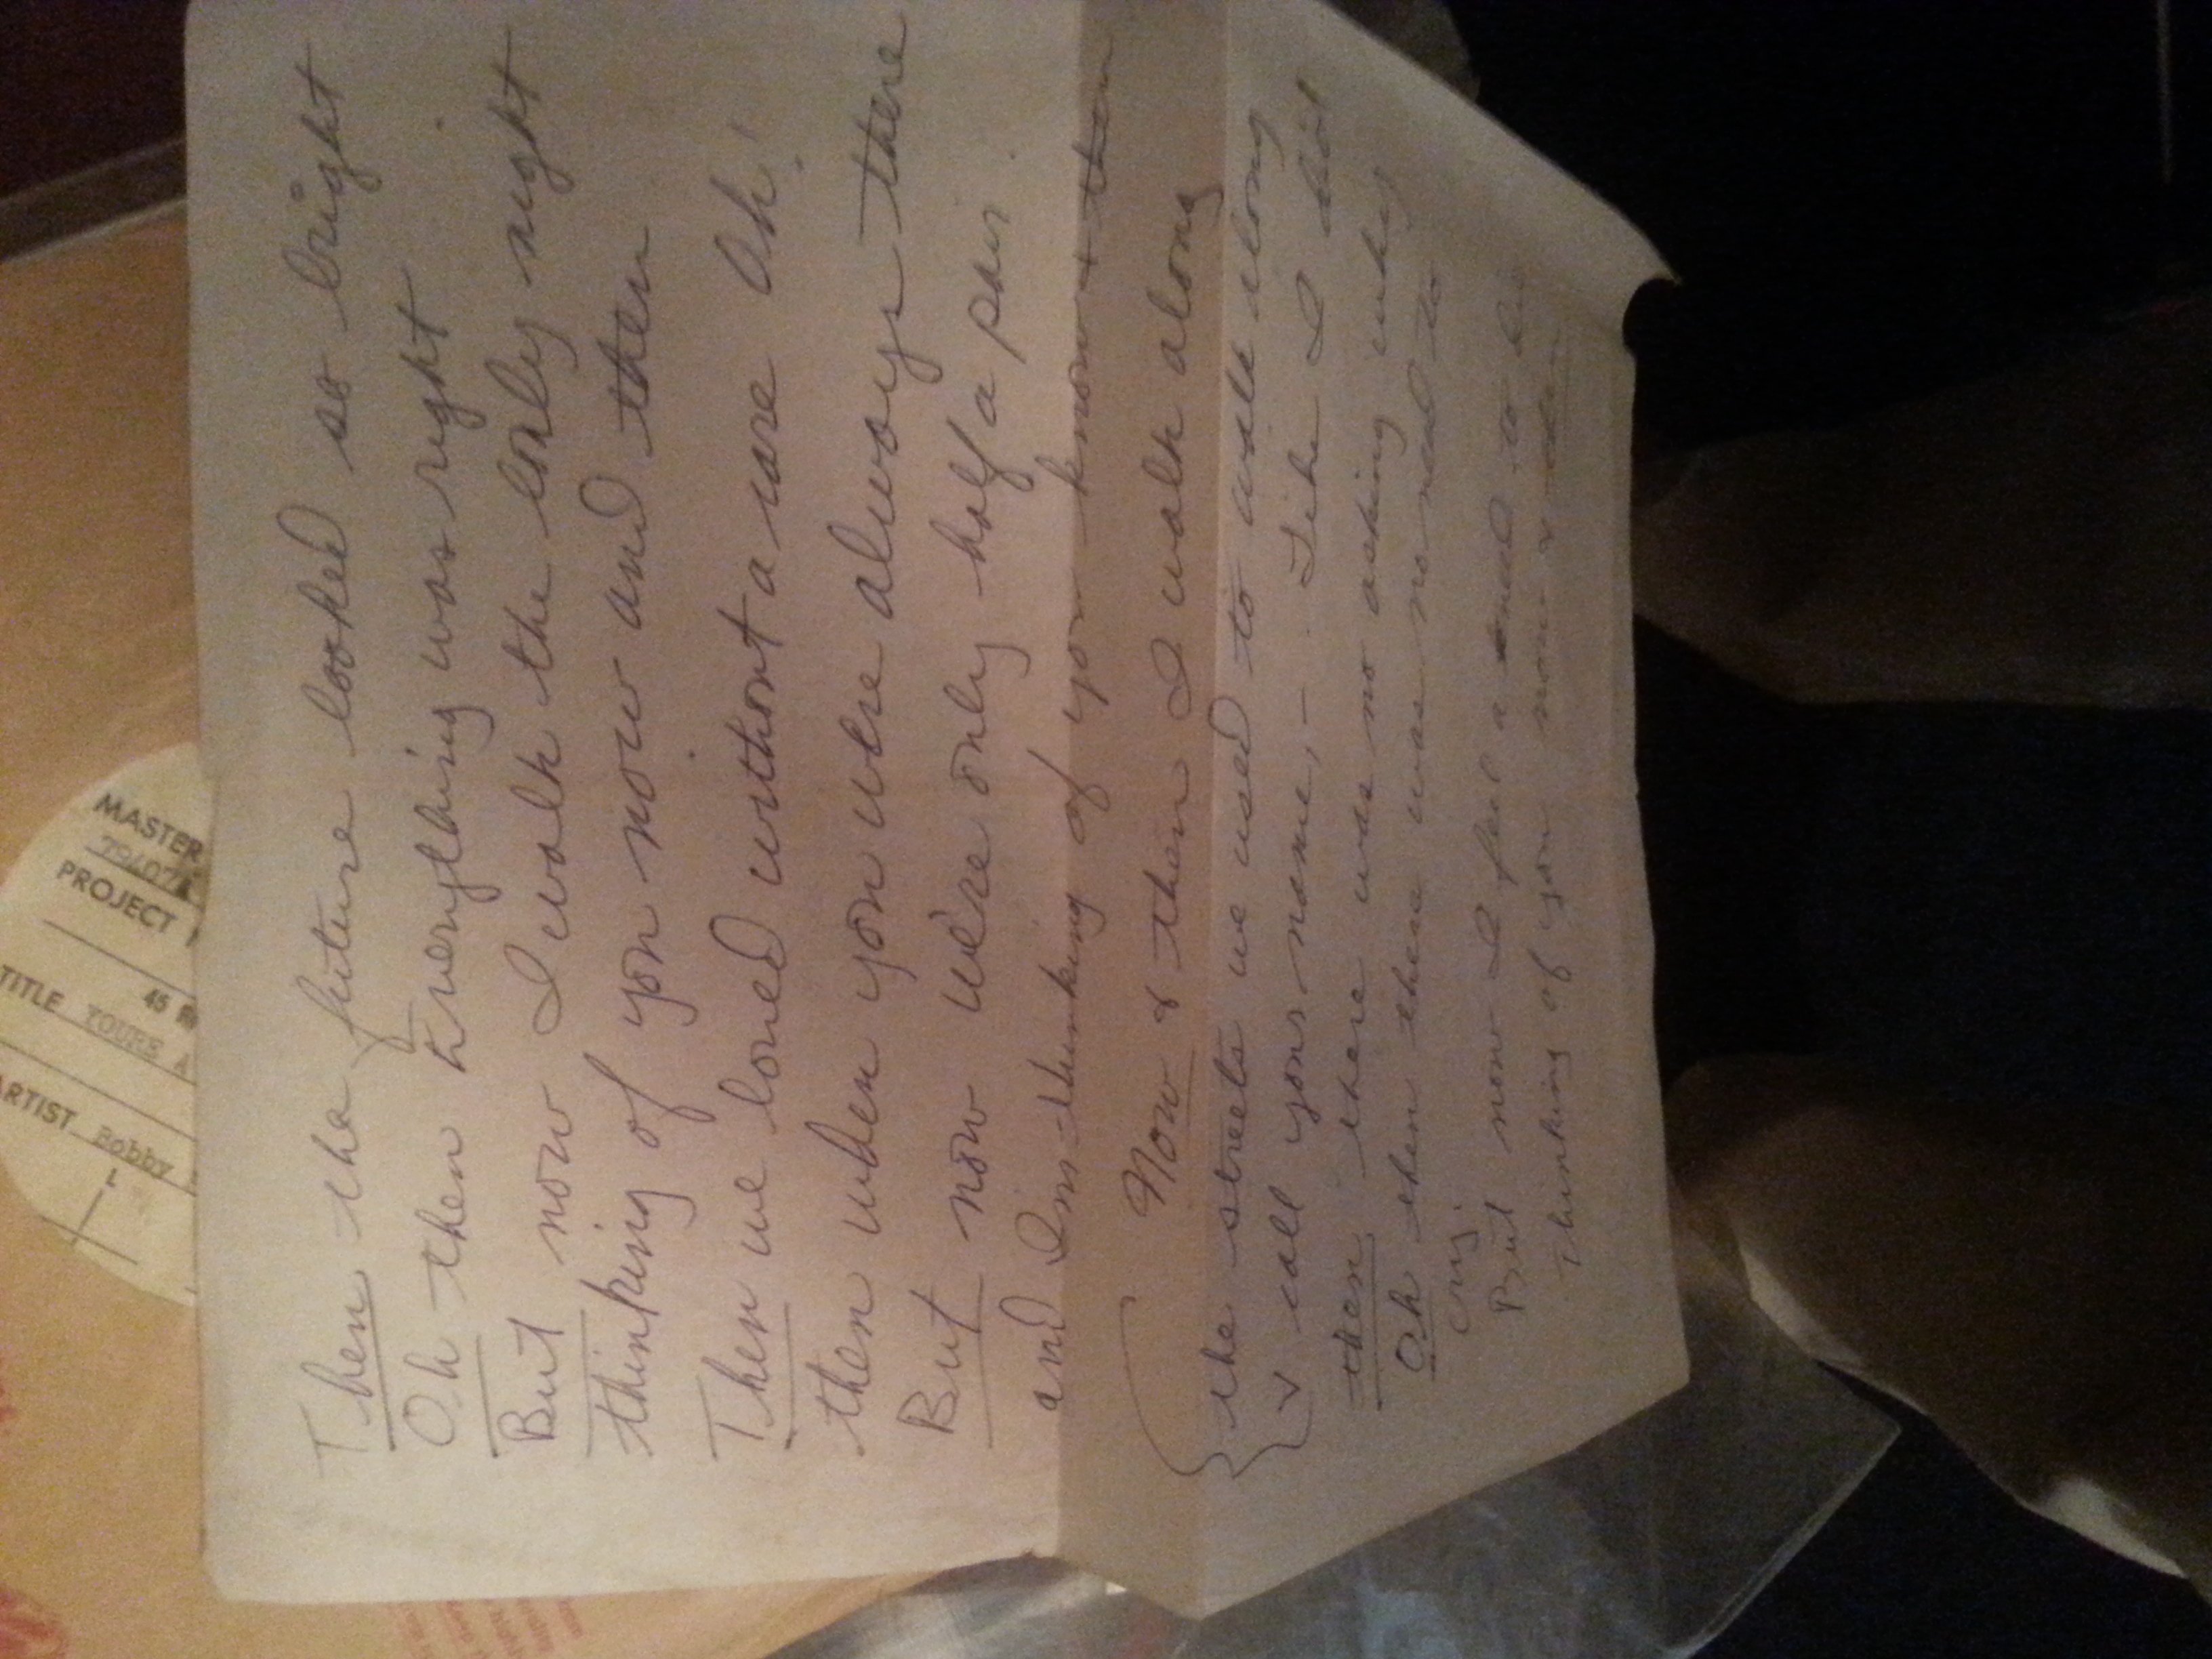 MASTER
PROJECT
45
TITLE YOURS
ARTIST Bobby
Then the future looked so bright
Oh then everything was right
But now I walk the lonly night
thinking of you now and then
Then we loved without a care Oh!
then when you were always there
But now we're only half a pair.
and I'm thinking of you know & then
Now & then I walk along
the streets we used to walk along
& call your name, - Like I did
then, there was no asking why
Oh then there was no need to
cry.
But now I feel a need to
Thinking of you now & then